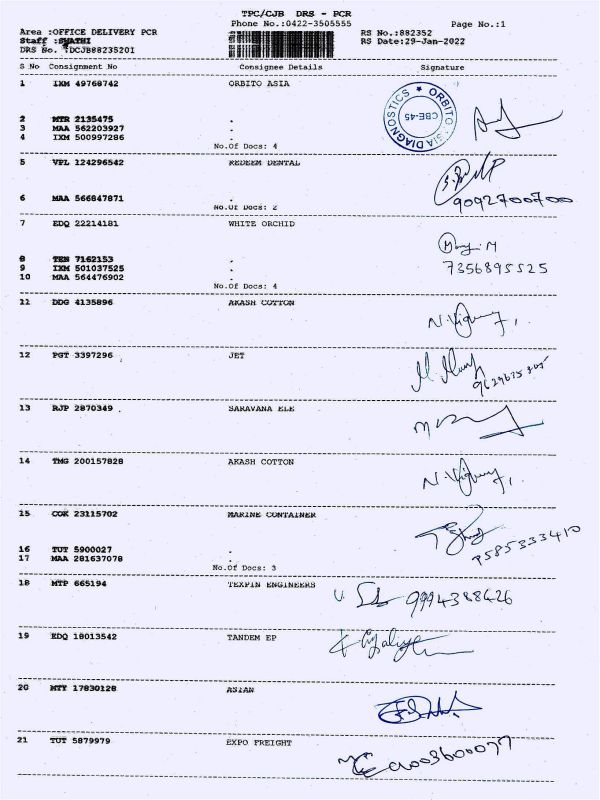 TPC/CJB DRS - PCR
Phone No.:0422-3505555 Page No.:1
Area :OFFICE DELIVERY PCR RS No.:882352
Staff :SWATHI RS Date:29-Jan-2022
DRS No. :DCJB88235201
S No Consignment No Consignee Details Signature
1 IXM 49768742 ORBITO ASIA
ORBITO ASIA DIAGNOSTICS ★
CBE-45
2 MTR 2135475 .
3 MAA 562203927 .
4 IXM 500997286 .
No.Of Docs: 4
5 VPL 124296542 REDEEM DENTAL
6 MAA 566847871 .
9092700700
No.Of Docs: 2
7 EDQ 22214181 WHITE ORCHID
8 TEN 7162153 .
7356895525
9 IXM 501037525 .
10 MAA 564476902 .
No.Of Docs: 4
11 DDG 4135896 AKASH COTTON
12 PGT 3397296 JET
13 RJP 2870349 . SARAVANA ELE
14 TMG 200157828 AKASH COTTON
15 COK 23115702 MARINE CONTAINER
16 TUT 5900027 .
17 MAA 281637078 .
No.Of Docs: 3
18 MTP 665194 TEXPIN ENGINEERS
9994388626
19 EDQ 18013542 TANDEM EP
20 MTT 17830128 ASIAN
21 TUT 5879979 EXPO FREIGHT